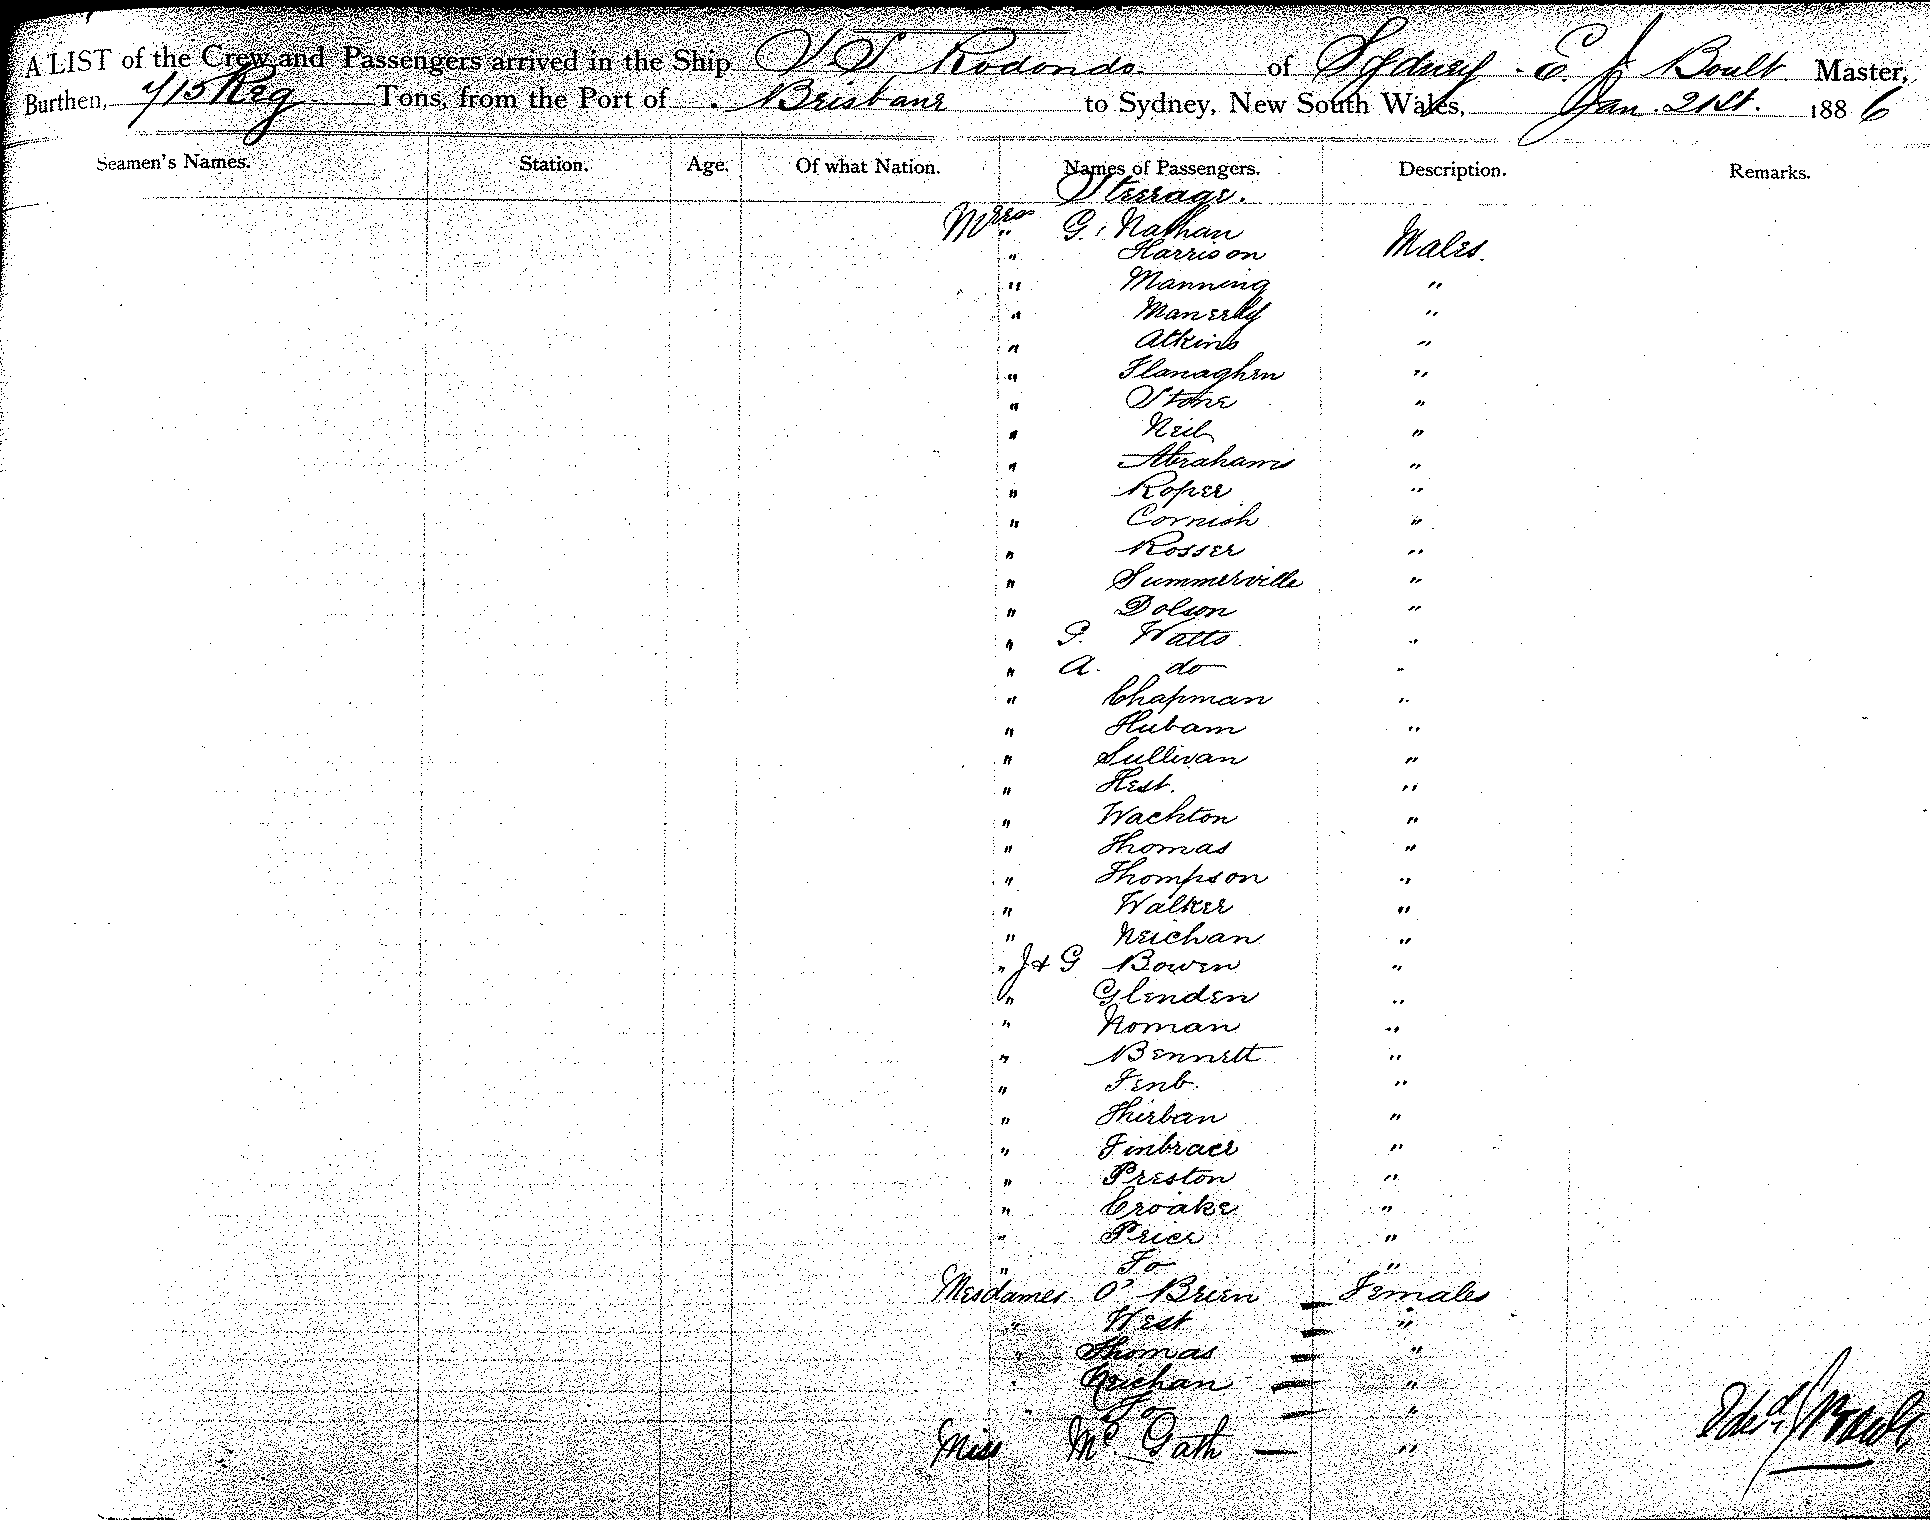 A LIST of the Crew and Passengers arrived in the Ship S S Rodondo of Sydney. E. J Boult Master,
Burthen, 715 Reg Tons, from the Port of Brisbane to Sydney, New South Wales, Jan. 21st. 1886
Seamen's Names. Station. Age. Of what Nation. Names of Passengers. Description. Remarks.
Steerage.
Messrs G. Nathan
" Harrison Males.
" Manning "
" Manerly "
" Atkins "
" Flanaghen "
" Stone "
" Neil "
" Abrahams "
" Roper "
" Cornish "
" Rosser "
" Summerville "
" Dolson "
" G. Watts "
" A. do "
" Chapman "
" Hubam "
" Sullivan "
" Hest. "
" Wachton "
" Thomas "
" Thompson "
" Walker "
" Neichan "
" J & G Bowen "
" Glenden "
" Noman "
" Bennett "
" Fenb. "
" Thirban "
" Finbracr "
" Preston "
" Croake "
" Price "
" Fo "
Mesdames O'Brien Females
" West "
" Thomas "
" Neichan "
" Fo "
Miss McGath "
Edwd J Boult